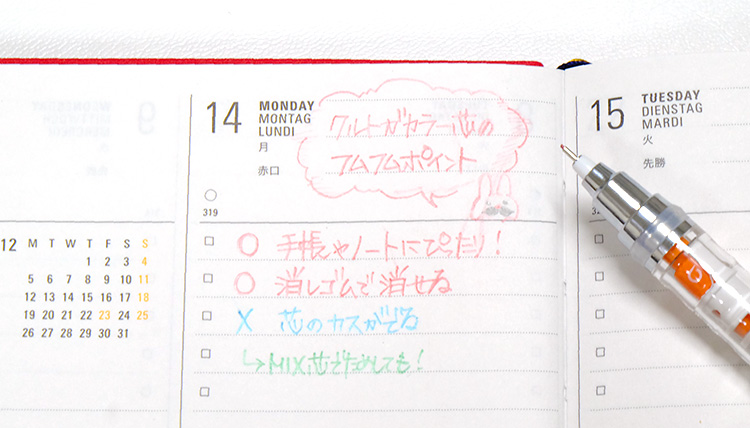 14
MONDAY
MONTAG
LUNDI
月
赤口
319
クルトガカラー芯の
フムフムポイント
○ 手帳やノートにぴったり!
○ 消しゴムで消せる
× 芯のカスがでる
↳MIX芯でためしても!
12 M T W T F S S
1 2 3 4
5 6 7 8 9 10 11
12 13 14 15 16 17 18
19 20 21 22 23 24 25
26 27 28 29 30 31
15
TUESDAY
DIENSTAG
MARDI
火
先勝